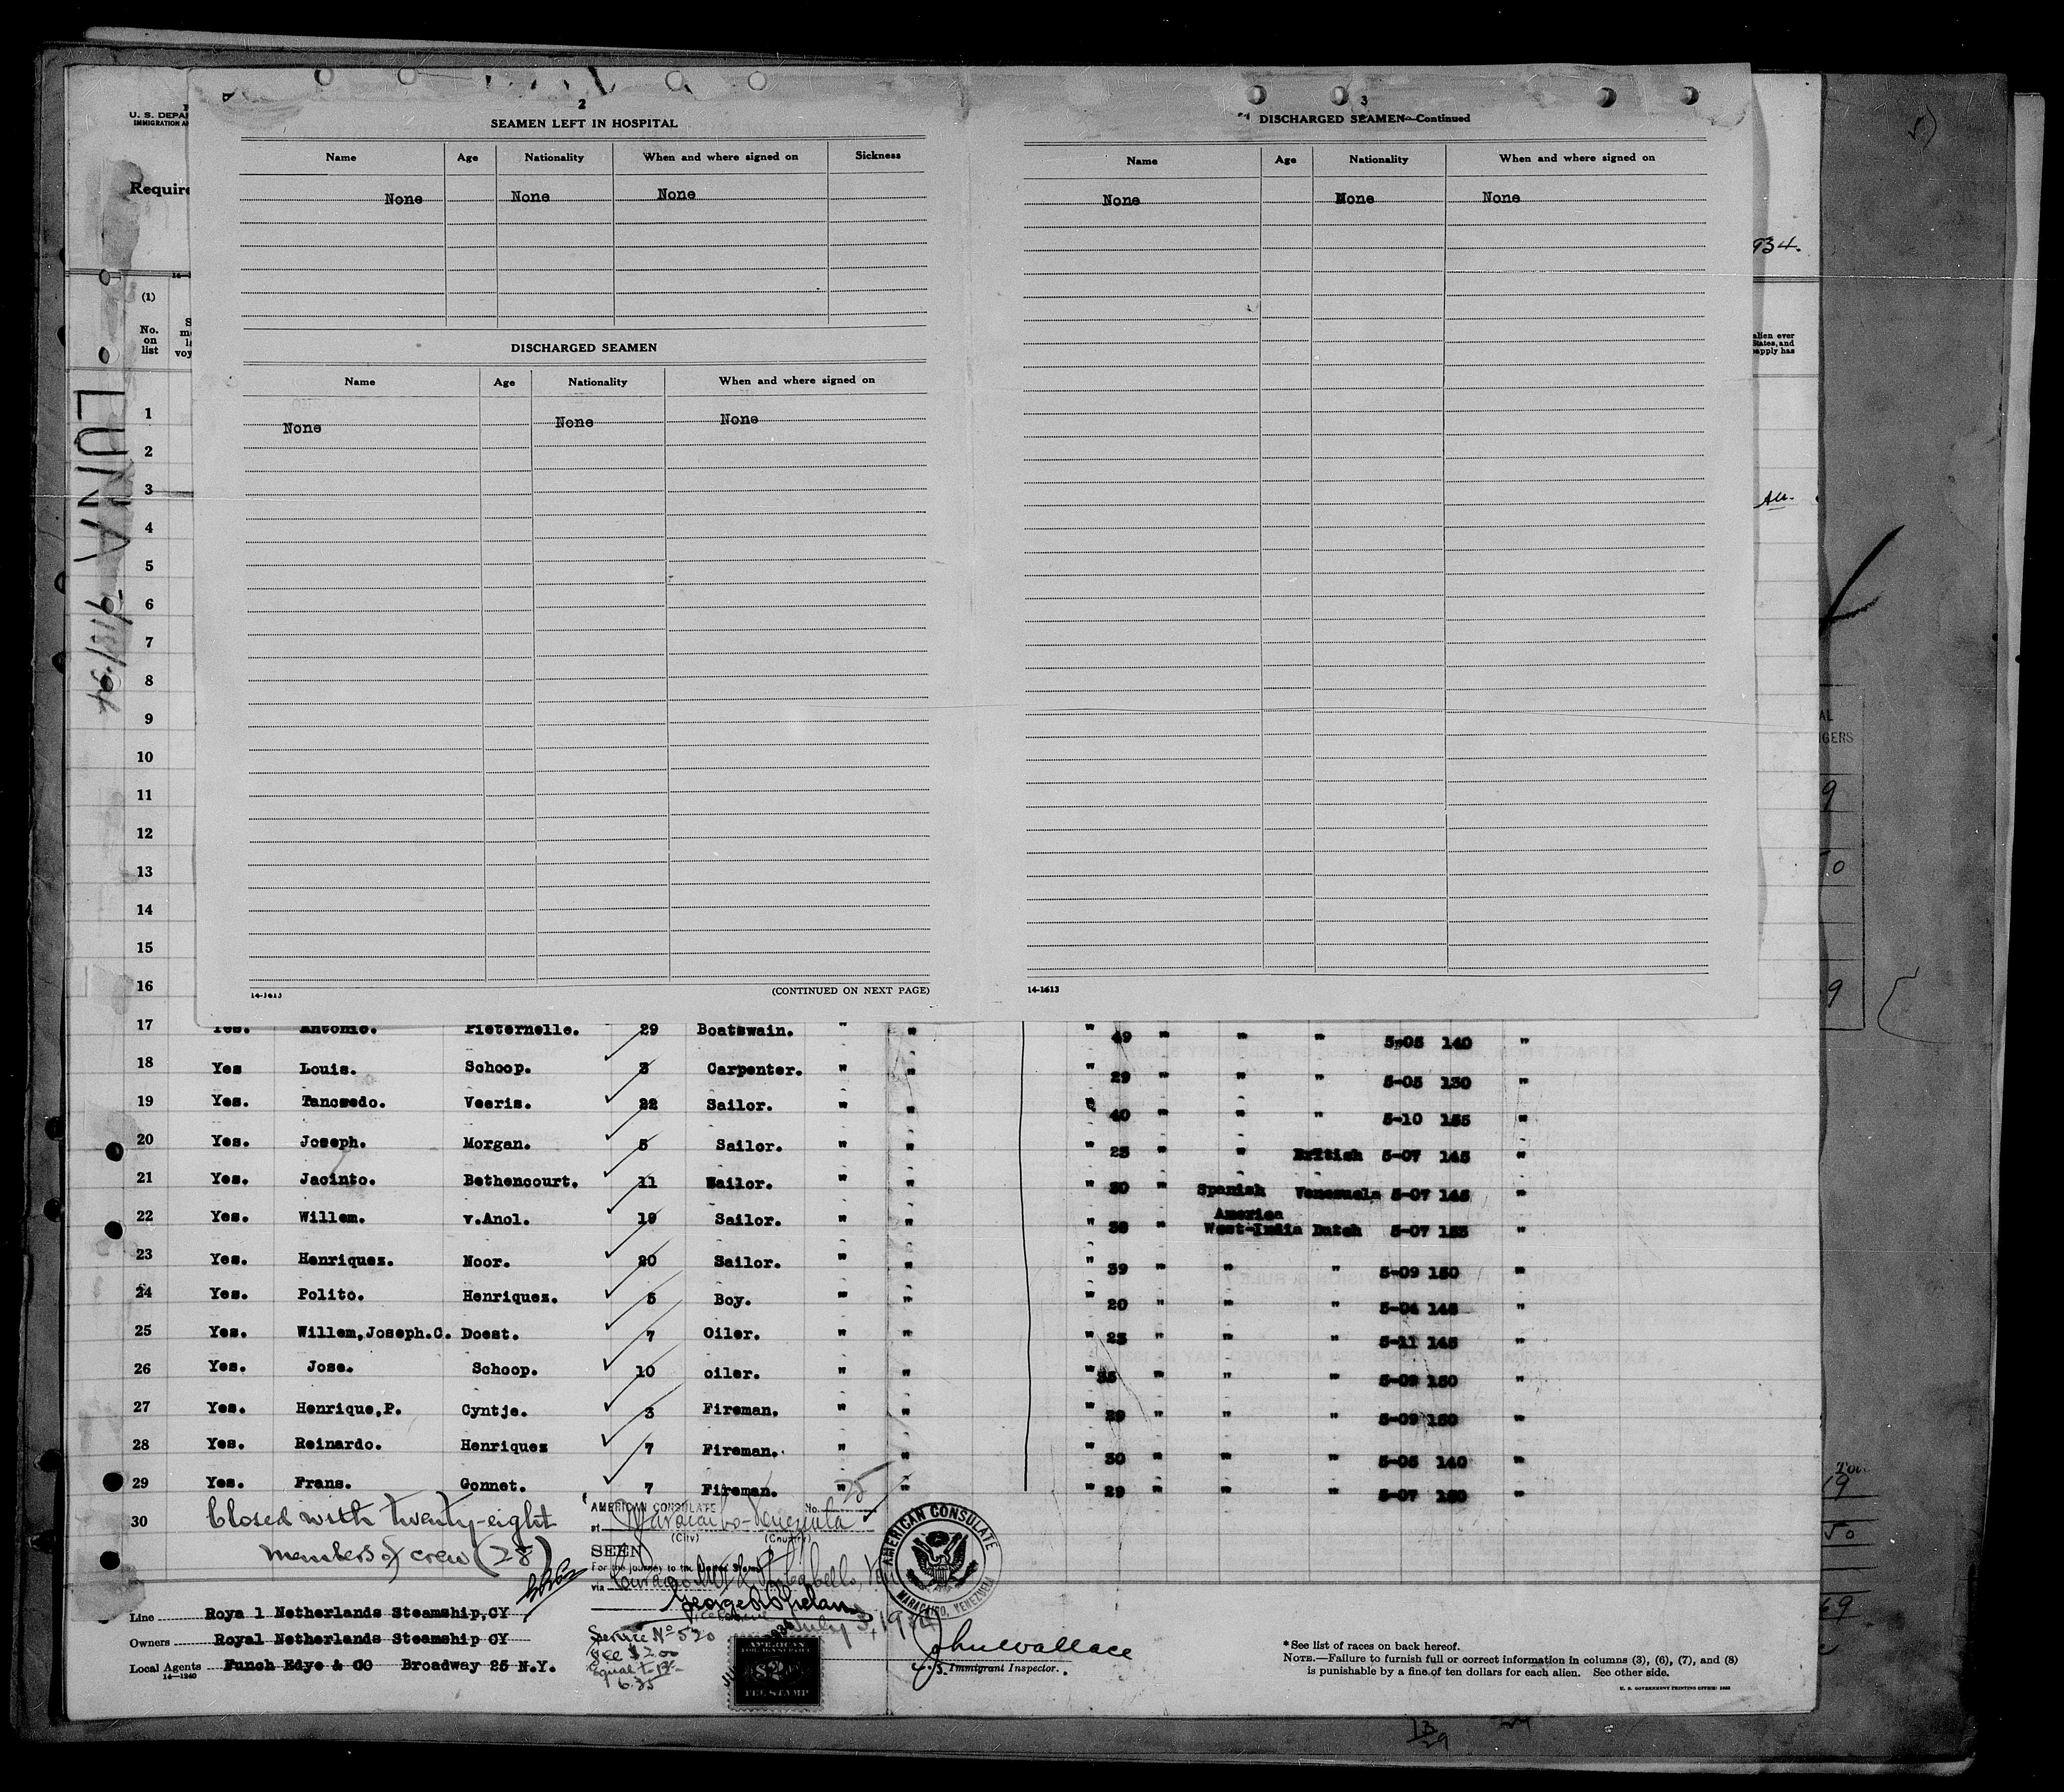 2
SEAMEN LEFT IN HOSPITAL
Name Age Nationality When and where signed on Sickness
None None None
DISCHARGED SEAMEN
Name Age Nationality When and where signed on
None None None
14-1613 (CONTINUED ON NEXT PAGE)
3
DISCHARGED SEAMEN—Continued
Name Age Nationality When and where signed on
None None None
14-1613
U. S. DEPA
IMMIGRATION A
Require
934.
(1)
No. on list
alien ever
States, and
LUNA
1
2
3
4
5
6
7
8
9
10
11
12
13
14
15
16
17 Yes. Antonio. Pieternelle. 29 Boatswain. " " " 49 " " " 5-05 140 "
18 Yes Louis. Schoop. 3 Carpenter. " " " 29 " " " 5-05 130 "
19 Yes. Tancredo. Veeris. 22 Sailor. " " " 40 " " " 5-10 155 "
20 Yes. Joseph. Morgan. 5 Sailor. " " " 25 " " British 5-07 145 "
21 Yes. Jacinto. Bethencourt. 11 Sailor. " " " 30 " Spanish America Venezuela 5-07 145 "
22 Yes. Willem. v.Anol. 19 Sailor. " " " 38 " West-India Dutch 5-07 155 "
23 Yes. Henriquez. Noor. 20 Sailor. " " " 39 " " " 5-09 150 "
24 Yes. Polito. Henriquez. 5 Boy. " " " 20 " " " 5-04 145 "
25 Yes. Willem,Joseph.C. Doest. 7 Oiler. " " " 25 " " " 5-11 145 "
26 Yes. Jose. Schoop. 10 oiler. " " " 35 " " " 5-09 150 "
27 Yes. Henrique,P. Cyntje. 3 Fireman. " " " 29 " " " 5-09 150 "
28 Yes. Reinardo. Henriquez 7 Fireman. " " " 30 " " " 5-05 140 "
29 Yes. Frans. Gonnet. 7 Fireman. " " " 29 " " " 5-07 150 "
30 Closed with twenty-eight
members of crew (28)
AMERICAN CONSULATE No. 25
at Maracaibo-Venezuela
(City) (Country)
SEEN
For the journey to the United States
via
July 3, 1934
Service No 520
Fee $2.00
Equal to Bs
6.35
AMERICAN
FOREIGN SERVICE
$2
FEE STAMP
AMERICAN CONSULATE
MARACAIBO, VENEZUELA
John Wallace
U. S. Immigrant Inspector.
Line Roya l Netherlands Steamship,CY
Owners Royal Netherlands Steamship CY
Local Agents Funch Edye & CO Broadway 25 N.Y.
14—1240
*See list of races on back hereof.
NOTE.—Failure to furnish full or correct information in columns (3), (6), (7), and (8)
is punishable by a fine of ten dollars for each alien. See other side.
U. S. GOVERNMENT PRINTING OFFICE: